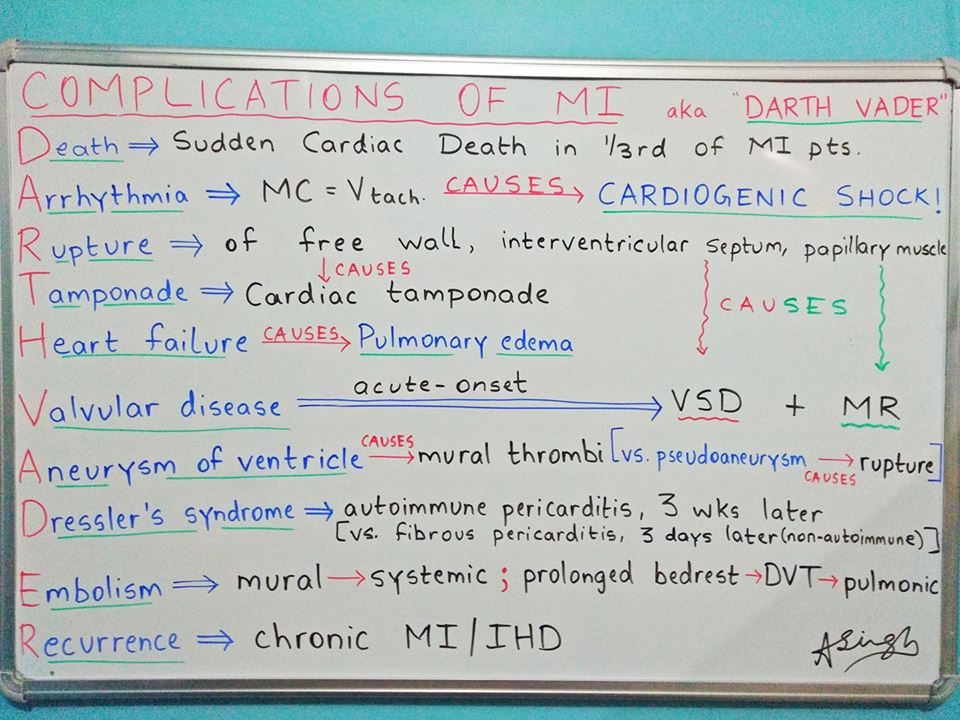 COMPLICATIONS OF MI aka "DARTH VADER"
Death ⇒ Sudden Cardiac Death in 1/3rd of MI pts.
Arrhythmia ⇒ MC = Vtach. CAUSES → CARDIOGENIC SHOCK!
Rupture ⇒ of free wall, interventricular septum, papillary muscle
↓ CAUSES
Tamponade ⇒ Cardiac tamponade
CAUSES
Heart failure CAUSES → Pulmonary edema
acute-onset
Valvular disease ⇒ VSD + MR
Aneurysm of ventricle CAUSES → mural thrombi [vs. pseudoaneurysm CAUSES → rupture]
Dressler's syndrome ⇒ autoimmune pericarditis, 3 wks later
[vs. fibrous pericarditis, 3 days later (non-autoimmune)]
Embolism ⇒ mural → systemic ; prolonged bedrest → DVT → pulmonic
Recurrence ⇒ chronic MI/IHD
ASingh